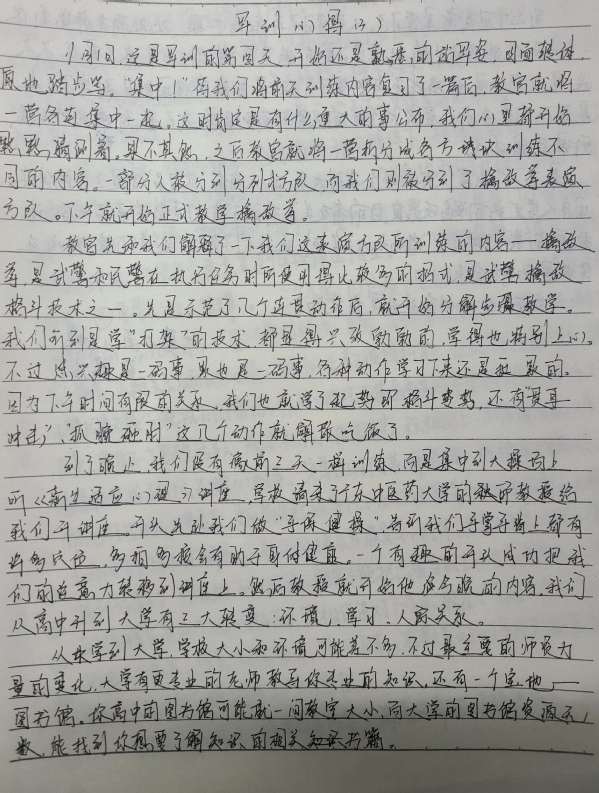 军训心得(3)
9月1日,这是军训的第四天,开始还是熟悉的站军姿,四面转体,
原地踏步等。"集中!"待我们将前天训练内容复习了一篇后,教官就将
一营各连集中一起。这时肯定是有什么重大的事公布,我们心里都开始
默默猜测着。果不其然,之后教官就将一营拆分成各方块队训练不
同的内容。一部分人被分到分列式方队,而我们则被分到了擒敌拳表演
方队。下午就开始正式教学擒敌拳。
教官先和我们解释了一下我们这表演方队所训练的内容——擒敌
拳,是武警和民警在执行任务时所使用得比较多的招式,是武警擒敌
格斗技术之一。先是示范了几个连贯动作后,就开始分解步骤教学。
我们听到是学"打架"的技术,都显得兴致勃勃的,学得也特别上心。
不过感兴趣是一码事,累也是一码事,各种动作学习下来还是挺累的。
因为下午时间有限的关系,我们也就学了起势即格斗势,还有"贯耳
冲击"、"抓腕砸肘"这几个动作就解散吃饭了。
到了晚上,我们没有像前三天一样训练,而是集中到大操场上
听《新生适应心理》讲座,学校请来了广东中医药大学的教师教授给
我们开讲座。开头先让我们做"手保健操",告诉我们手掌手指上都有
许多穴位,多相多接会有助于身体健康。一个有趣的开头成功把我
们的注意力转移到讲座上。然后教授就开始他今晚的内容,我们
从高中升到大学有三大转变:环境,学习,人际关系。
从中学到大学,学校大小和环境可能差不多,不过最主要的师资力
量的变化,大学有更专业的老师教导你专业的知识,还有一个宝地——
图书馆。你高中的图书馆可能就一间教室大小,而大学的图书馆资源无
数,能找到你想要了解知识的相关书籍。